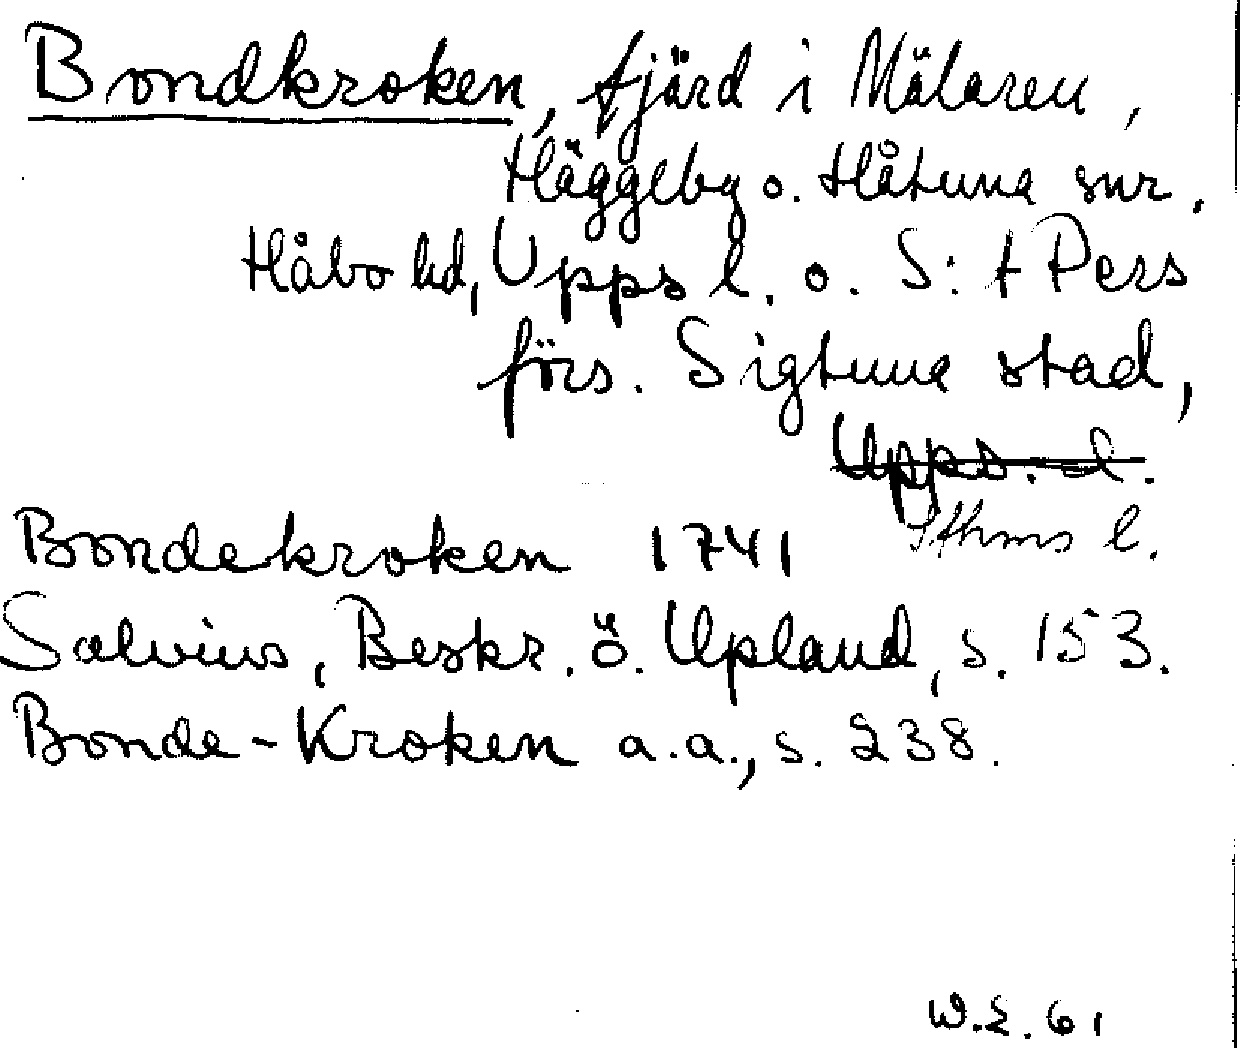 Bondkroken, fjärd i Mälaren,
Häggeby o. Håtuna snr.
Håbo hd, Upps l. o. S:t Pers
förs. Sigtuna stad,
Upps. l.
Sthms l.
Bondekroken 1741
Salvius, Beskr. ö. Upland, s. 153.
Bonde-Kroken a.a., s. 238.
W.E. 61